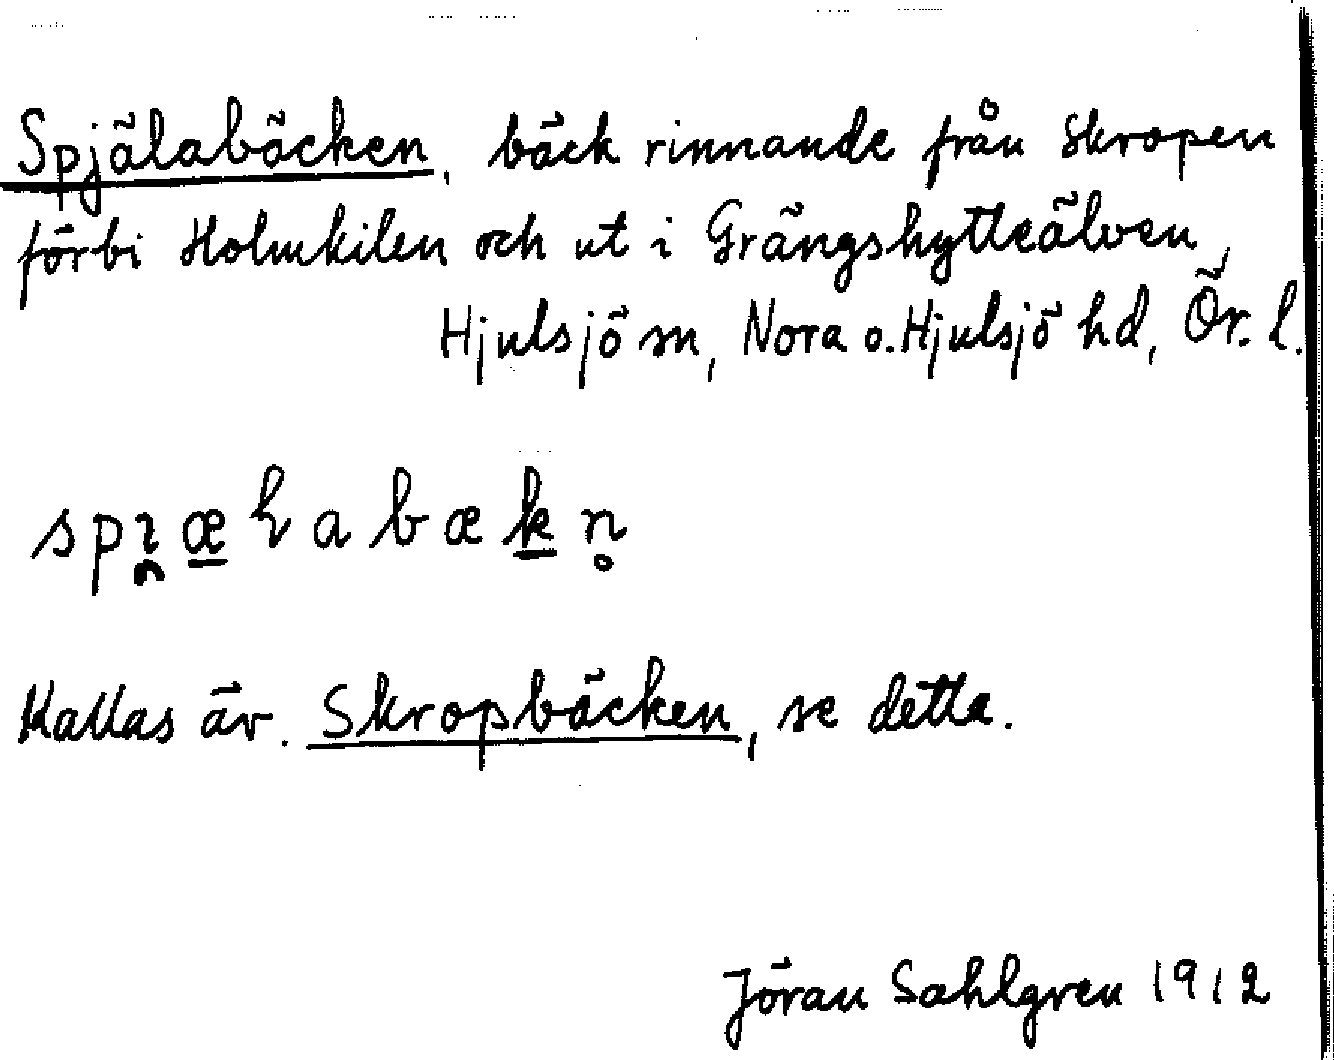 Spjälabäcken, bäck rinnande från Skropen
förbi Holmkilen och ut i Grängshytteälven,
Hjulsjö sn, Nora o. Hjulsjö hd, Ör. l.
spı̯æ̲ɽabæk̲n̥
Kallas äv. Skropbäcken, se detta.
Jöran Sahlgren 1912